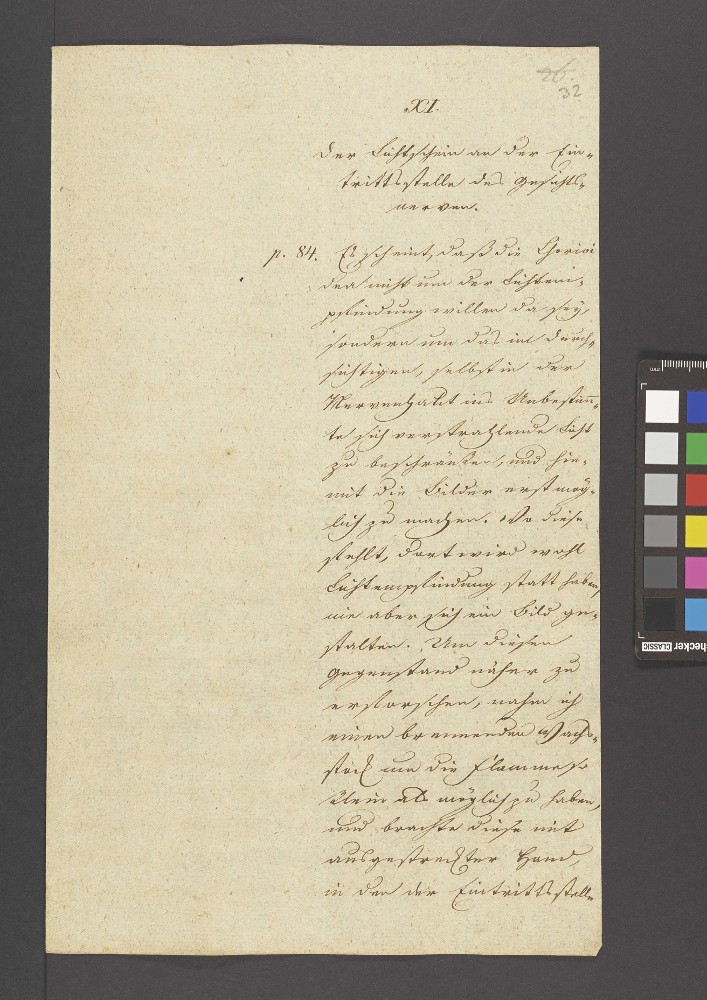 26.
32
XI.
Der Lichtschein an der Ein-
trittsstelle des Gesichts-
nerven.
p. 84. Es scheint, daß die Chorioi
dea nicht um der Lichtem-
pfindung willen da sey,
sondern um das im Durch-
sichtigen, selbst in der
Nervenhaut ins Unbestimm-
te sich verstrahlende Licht
zu beschränken, und hie-
mit die Bilder erst mög-
lich zu machen. Wo diese
fehlt, dort wird wohl
Lichtempfindung statt haben,
nie aber sich ein Bild ge-
stalten. Um diesen
Gegenstand näher zu
erforschen, nahm ich
einen brennenden Wachs-
stock um die Flamme so
klein als möglich zu haben,
und brachte diese mit
ausgestreckter Hand,
in den der Eintrittsstelle